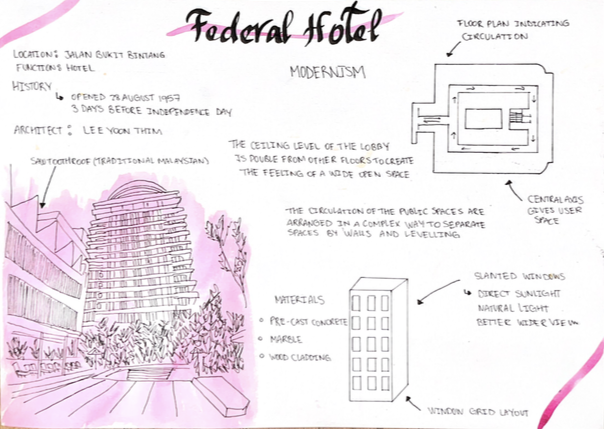 Federal Hotel
LOCATION: JALAN BUKIT BINTANG
FUNCTION: HOTEL
HISTORY
OPENED 28 AUGUST 1957
3 DAYS BEFORE INDEPENDENCE DAY
ARCHITECT: LEE YOON THIM
SAWTOOTH ROOF (TRADITIONAL MALAYSIAN)
MODERNISM
FLOOR PLAN INDICATING
CIRCULATION
THE CEILING LEVEL OF THE LOBBY
IS DOUBLE FROM OTHER FLOORS TO CREATE
THE FEELING OF A WIDE OPEN SPACE
CENTRAL AXIS
GIVES USER
SPACE
THE CIRCULATION OF THE PUBLIC SPACES ARE
ARRANGED IN A COMPLEX WAY TO SEPARATE
SPACES BY WALLS AND LEVELLING
MATERIALS
PRE-CAST CONCRETE
MARBLE
WOOD CLADDING
SLANTED WINDOWS
DIRECT SUNLIGHT
NATURAL LIGHT
BETTER WIDER VIEW
WINDOW GRID LAYOUT